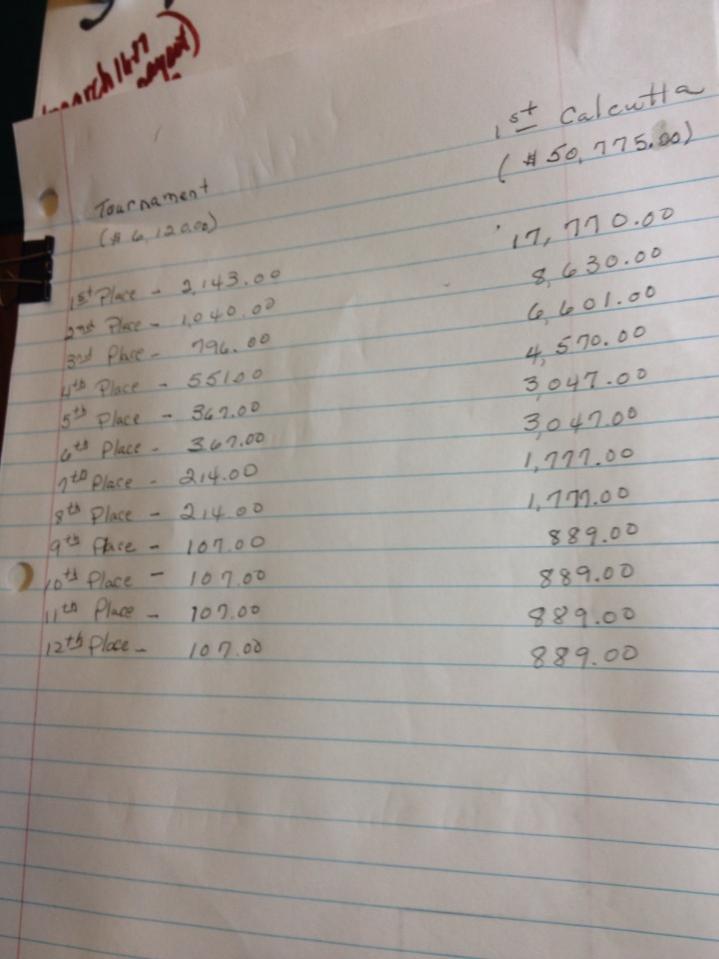 march 16-17
1st Calcutta
($50,775.00)
Tournament
($6,120.00)
1st Place - 2,143.00 17,770.00
2nd Place - 1,040.00 8,630.00
3rd Place - 796.00 6,601.00
4th Place - 551.00 4,570.00
5th Place - 367.00 3,047.00
6th Place - 367.00 3,047.00
7th Place - 214.00 1,777.00
8th Place - 214.00 1,777.00
9th Place - 107.00 889.00
10th Place - 107.00 889.00
11th Place - 107.00 889.00
12th Place - 107.00 889.00